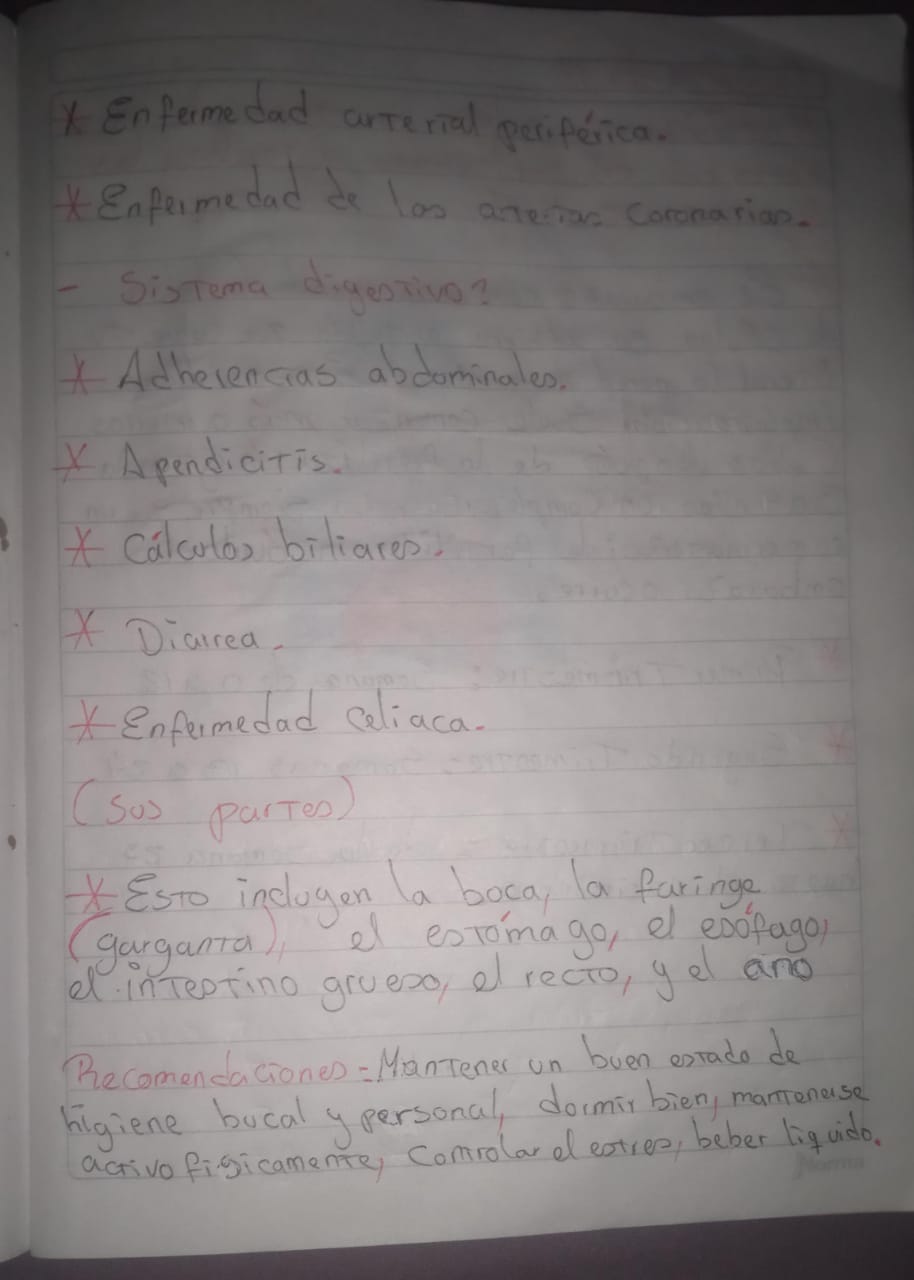 * Enfermedad arterial periférica.
* Enfermedad de las arterias Coronarias.
- Sistema digestivo?
* Adherencias abdominales.
* Apendicitis.
* Cálculos biliares.
* Diarrea.
* Enfermedad Celiaca.
(Sus partes)
* Esto incluyen la boca, la faringe
(garganta), el estómago, el esófago,
el intestino grueso, el recto, y el ano
Recomendaciones = Mantener un buen estado de
higiene bucal y personal, dormir bien, mantenerse
activo fisicamente, Controlar el estres, beber liquido.
Norma